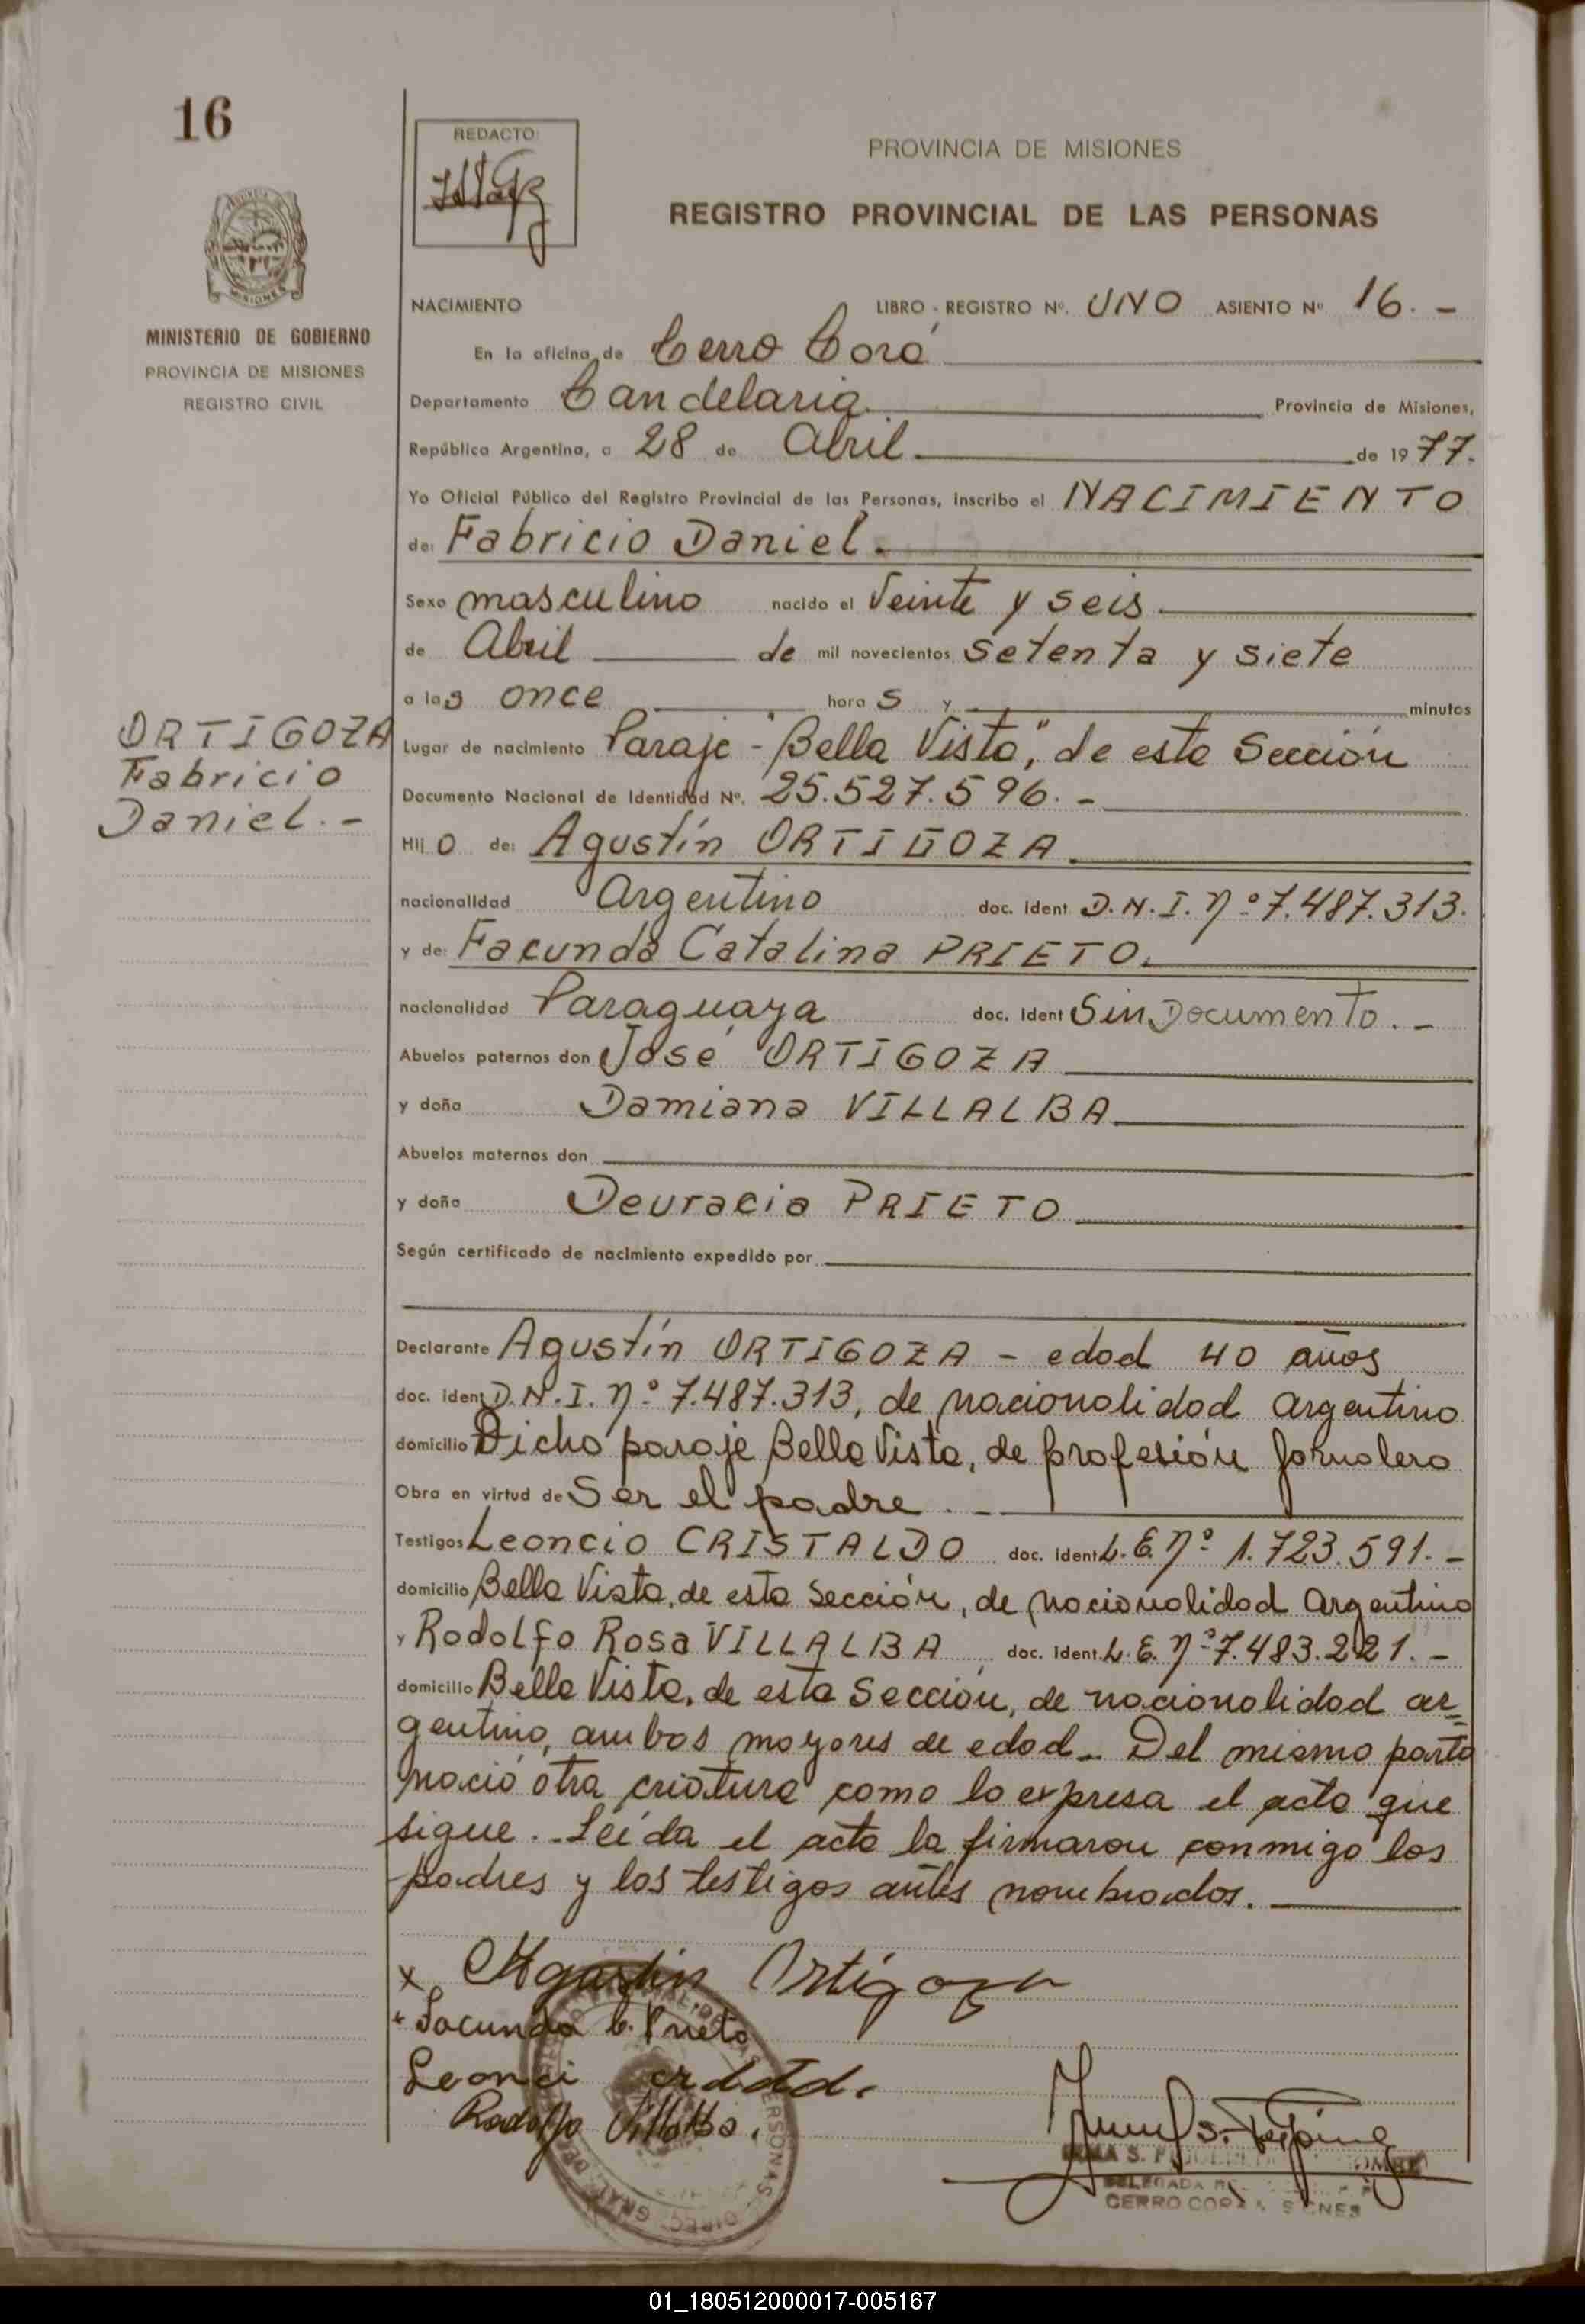 16
REDACTO:
PROVINCIA DE MISIONES
REGISTRO PROVINCIAL DE LAS PERSONAS
MINISTERIO DE GOBIERNO
PROVINCIA DE MISIONES
REGISTRO CIVIL
NACIMIENTO LIBRO - REGISTRO Nº. UNO ASIENTO Nº 16. -
En la oficina de Cerro Corá
Departamento Candelaria Provincia de Misiones,
República Argentina, a 28 de Abril de 1977.
Yo Oficial Público del Registro Provincial de las Personas, inscribo el NACIMIENTO
de: Fabricio Daniel.
Sexo masculino nacido el Veinte y seis
de Abril de mil novecientos setenta y siete
a las once horas y minutos
ORTIGOZA
Fabricio
Daniel. -
Lugar de nacimiento Paraje - "Bella Vista", de esta Sección
Documento Nacional de Identidad Nº. 25.527.596. -
Hijo de: Agustín ORTIGOZA
nacionalidad Argentino doc. ident D.N.I. Nº 7.487.313.
y de: Facunda Catalina PRIETO.
nacionalidad Paraguaya doc. ident Sin Documento. -
Abuelos paternos don José ORTIGOZA
y doña Damiana VILLALBA
Abuelos maternos don
y doña Deuracia PRIETO
Según certificado de nacimiento expedido por
Declarante Agustín ORTIGOZA - edad 40 años
doc. ident D.N.I. Nº 7.487.313, de nacionalidad argentino
domicilio Dicho paraje Bella Vista, de profesión jornalero
Obra en virtud de Ser el padre. -
Testigos Leoncio CRISTALDO doc. ident L.E. Nº 1.723.591. -
domicilio Bella Vista, de esta Sección, de nacionalidad argentino
y Rodolfo Rosa VILLALBA doc. ident L.E. Nº 7.483.221. -
domicilio Bella Vista, de esta Sección, de nacionalidad ar=
gentino, ambos mayores de edad. - Del mismo parto
nació otra criatura como lo expresa el acta que
sigue. - Leída el acta la firmaron conmigo los
padres y los testigos antes nombrados.
x Agustin Ortigoza
Facunda C. Prieto
Leonci
Rodolfo Villalba.
DELEGADA
CERRO CORA
01_180512000017-005167